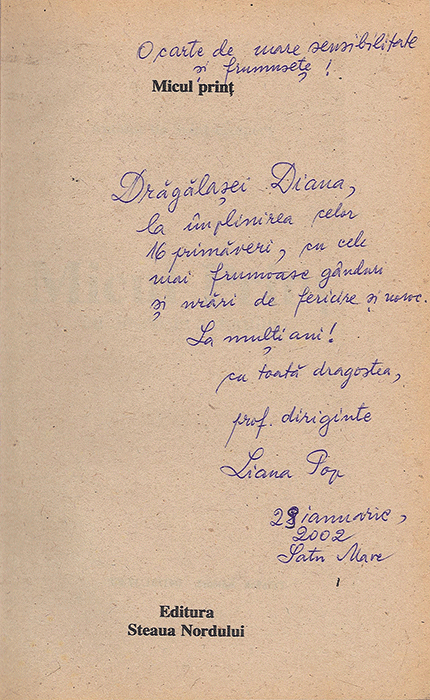 O carte de mare sensibilitate
și frumusețe!
Micul prinț
Drăgălașei Diana,
la împlinirea celor
16 primăveri, cu cele
mai frumoase gânduri
și urări de fericire și noroc.
La mulți ani!
cu toată dragostea,
prof. diriginte
Liana Pop
28 ianuarie,
2002
Satu Mare
Editura
Steaua Nordului